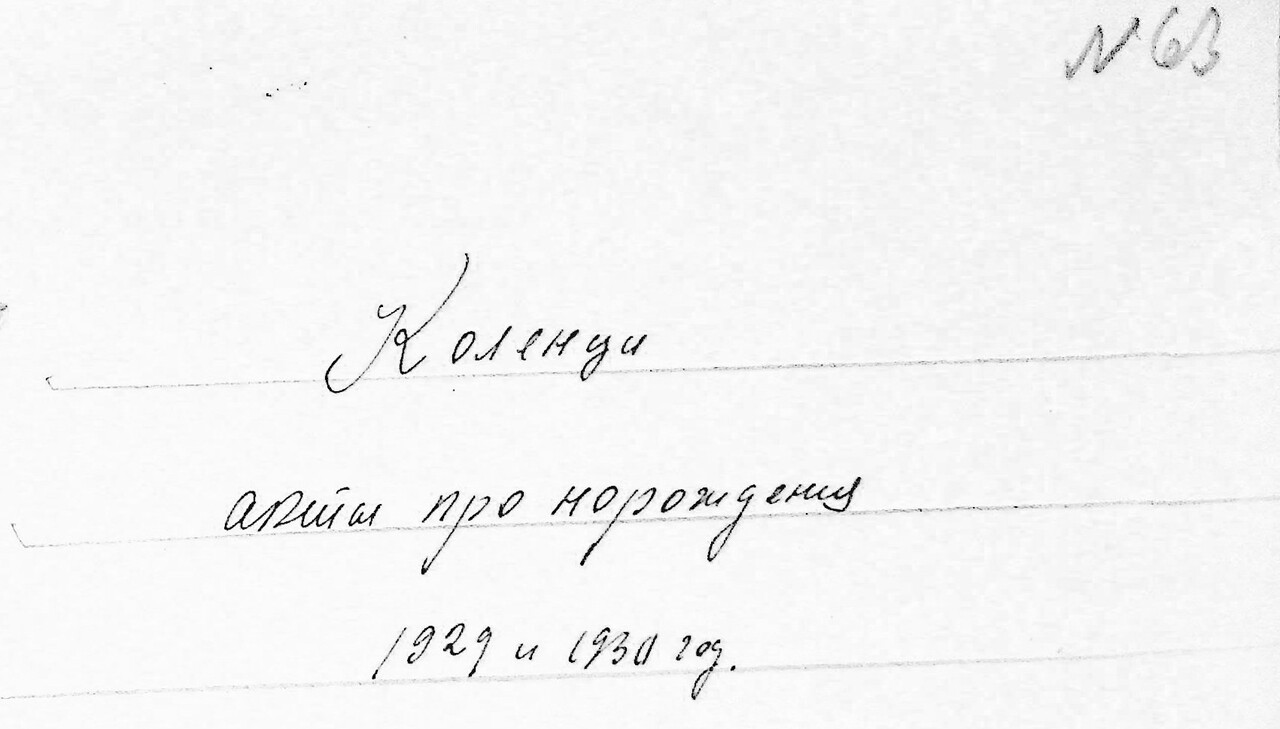 N 63
Коленци
акты про норождения
1929 и 1930 год.